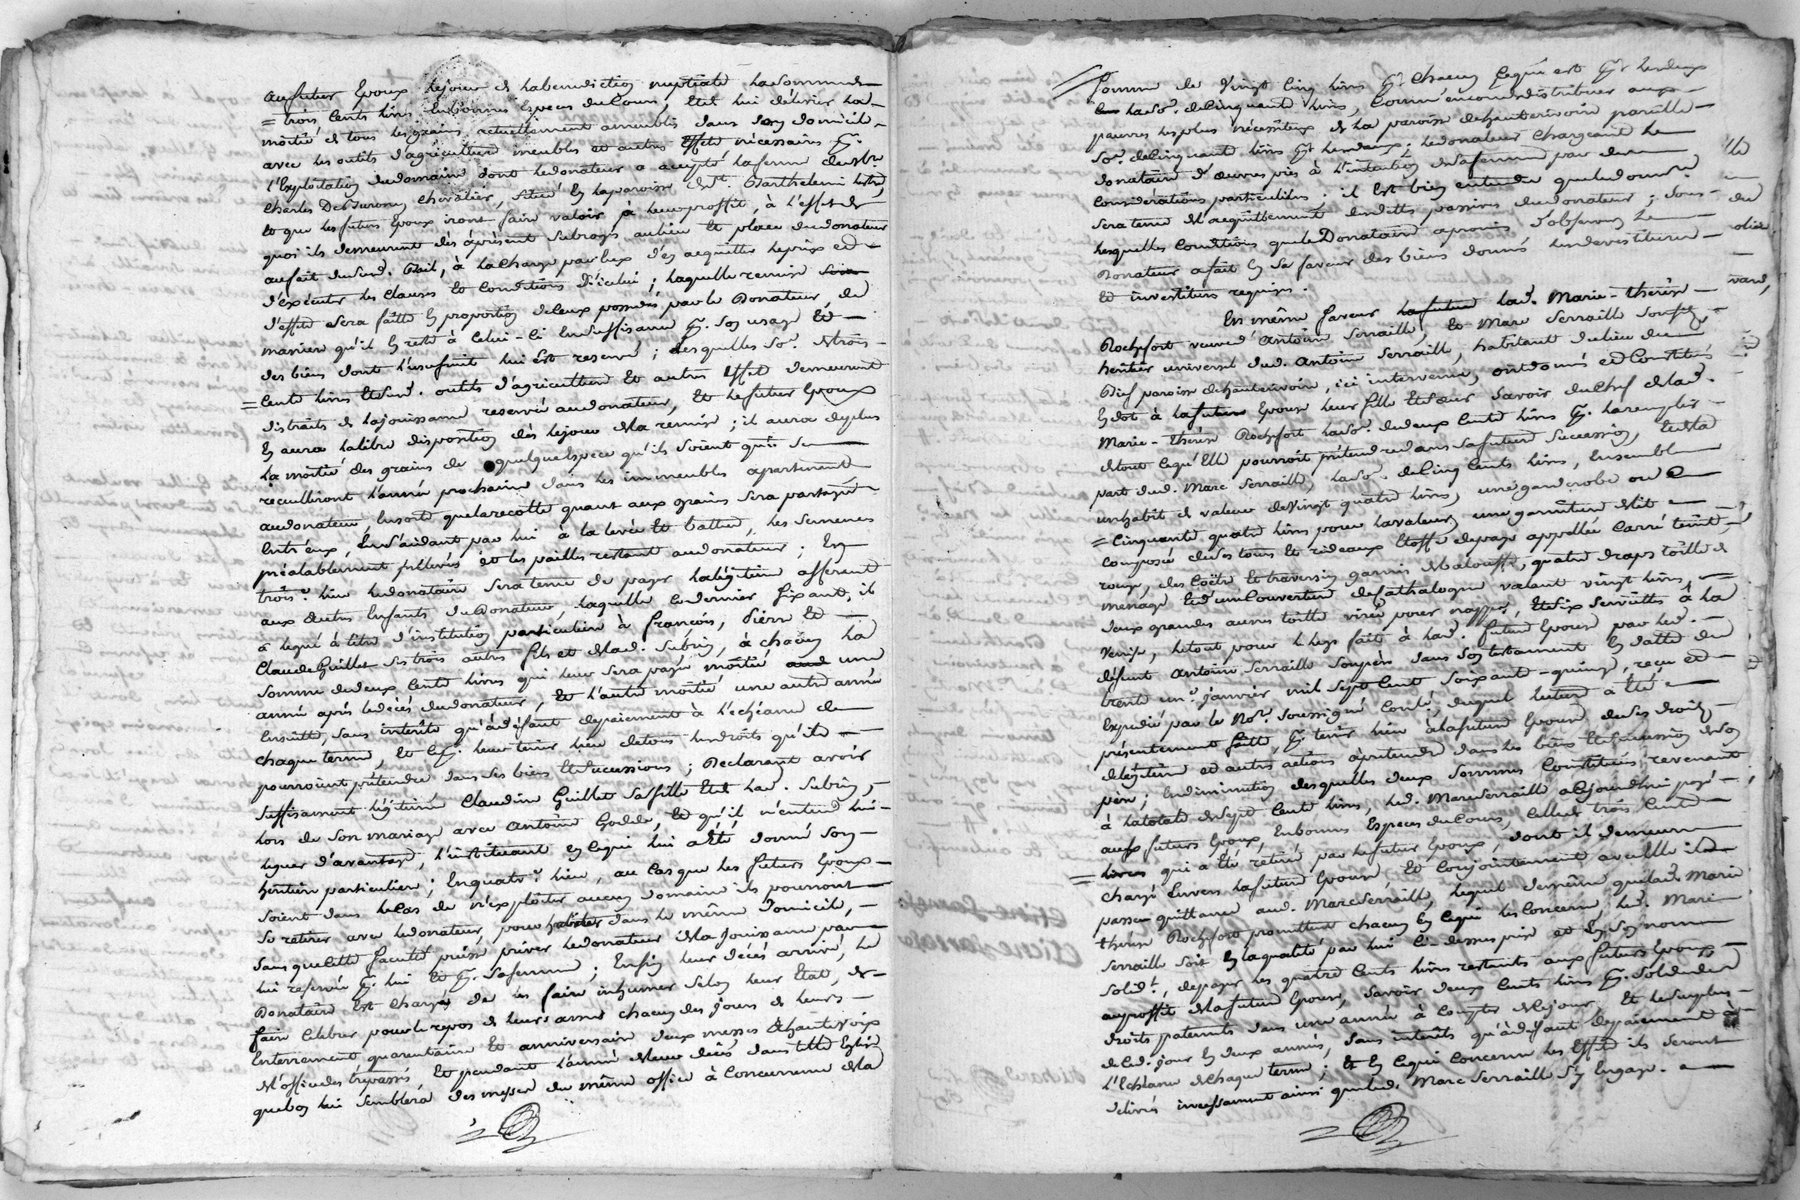 au futur Epoux le jour de la benediction nuptiale la somme de
= trois Cents livres En bonnes Especes du Cours, Et à lui délivrer la
moitié de tous les grains actuellement ameublis dans son domicile
avec les outils d'agriculture meubles et autres Effets nécessaires pr.
l'Exploitation du domaine dont le donateur a accepté la ferme de
Charles De Chevalier, Situé En la paroisse de St. Barthelemi
Et que les futurs Epoux iront faire valoir à leur proffit, à l'effet de
quoi ils demeurent dès àprésent Subrogés au lieu Et place du donateur
au fait dud. Bail, à la Charge par Eux d'en acquitter le prix Et
d'Exécuter les Clauses Et Conditions d'icelui ; laquelle remise
d'Effets Sera faitte En proportion de Ceux possédés par le Donateur, de
maniere qu'il En reste à Celui-Ci En suffisance pr. Son usage Et
des biens dont l'usufruit lui Est reservé ; desquelles So. de trois
= Cents livres Et sud. outils d'agriculture Et autres Effets demeurent
distraits de la jouissance reservée au donateur, Et le futur Epoux
En aura la libre disposition dès le jour de la remise ; il aura de plus
la moitié des grains de quelque Espece qu'ils Soient qui Se
recuilliront l'année prochaine dans les immeubles apartenants
au donateur, En sorte que la recolte quant aux grains Sera partagée
Entr'eux, En s'aidant par lui à la levée Et batture, les Semences
préalablement prélevées Et les pailles restant au donateur ; En
trois.e lieu le donataire Sera tenu de payer la légitime afferante
aux autres Enfants du Donateur, laquelle Ce dernier fixant, il
a légué à titre d'institution particuliere à François, Pierre Et
Claude Guillet Ses trois autres fils et de lad. Subrin, à chacun la
Somme de deux Cents livres qui leur Sera payée moitié une
année après le décès du donateur, Et l'autre moitié une autre année
Ensuitte, Sans interêts qu'à défaut de paiement à l'échéance de
chaque terme, Et Ce pr. leur tenir lieu de tous les droits qu'ils
pourroient prétendre dans Ses biens Et Successions ; Declarant avoir
Suffisament légitimé Claudine Guillet Sa fille Et de lad. Subrin,
lors de Son mariage avec Antoine Godde, Et qu'il n'entend lui
leguer d'avantage, l'instituant En Ce qui lui a Eté donné Son
héritiere particuliere ; En quatr.e lieu, au Cas que les futurs Epoux
Soient dans le Cas de n'exploiter aucun domaine ils pourront
Se retirer avec le donateur, pour habiter dans le même domicile,
Sans que Cette faculté puisse priver le donateur de la jouissance par
lui reservée pr. lui Et pr. Sa femme ; Enfin leur décès arrivé, le
Donataire Est Chargé de les faire inhumer Selon leur Etat, de
faire Célébrer pour le repos de leurs ames chacun des jours de leurs
Enterrement quarantaine Et anniversaire deux messes à haute voix
Et l'office des trépassés, Et pendant l'année de leur décès dans telle Eglise
que bon lui Semblera des messes du même office à Concurrence de la
Somme de Vingt Cinq livres pr. Chacun Ce qui est pr. les deux
la So. de Cinquante livres, Comme encore de distribuer aux
pauvres les plus nécessiteux de la paroisse de hauterivoire pareille
So. de Cinquante livres pr. les deux ; le donateur Chargeant le
donataire d'œuvres pies à l'intention de sa femme par des
Considérations particulieres. il Est bien entendu que le donat.e
Sera tenu de l'acquittement des dettes passives du donateur ; Sous
lesquelles Conditions que le Donataire a promis d'observer le
Donateur a fait En Sa faveur des biens donnés les devestitures
Et investitures requises.
En même faveur lad. Marie-Therèse
Rochefort veuve d'Antoine Serraille, Et Marc Serraille Son fils
héritier universel dud. Antoine Serraille, habitants du lieu du
Pief paroisse de hauterivoire, ici intervenus, ont donné et Constitué
En dot à la future Epouse leur fille Et Sœur Savoir du Chef de lad.
Marie-Therèse Rochefort la So. de deux Cents livres pr.
de tout Ce qu'Elle pourroit prétendre dans sa future Succession, Et de la
part dud. Marc Serraille la So. de Cinq Cents livres, Ensemble
un habit de valeur de Vingt quatre livres, une garderobe ou
= Cinquante quatre livres pour la valeur, une garniture de lit
Composée de Ses tours Et rideaux Etoffe de païs appellée Carré teint
rouge, des Coëtre Et traversin garnis de balouffe, quatre draps toille de
menage Et d'un Couverture de Cathalogne valant vingt livres,
deux grandes aunes toille pour nappes, Et de Six Serviettes à la
Venise, le tout pour le legs fait à lad. future Epouse par led.
défunt Antoine Serraille Son père dans Son testament En datte du
trente un.e janvier mil Sept Cent Soixante-quinze, reçu et
Expedié par le No.re Soussigné Conté, duquel lecture a Eté
présentement faitte, pr. tenir lieu à la future Epouse de Ses droits
de légitime Et autres actions à prétendre dans les biens Et Succession de Son
père ; En diminution desquelles deux Sommes Constituées, revenant
à la totale de Sept Cents livres, led. Marc Serraille a Ce jourd'hui payé
aux futurs Epoux, En bonnes Especes du Cours, Celle de trois Cents
= livres qui a Eté retirée par le futur Epoux, dont il demeure
chargé Envers la future Epouse Et Conjointement avec Elle il En
passe quittance aud. Marc Serraille, lequel de même que lad. Marie
thérèse Rochefort promettent chacun En Ce qui les Concerne, led. Marc
Serraille Soit En la qualité par lui Ci-dessus prise et En Son nom
Solid.t, de payer les quatre Cents livres restants aux futurs Epoux
au proffit de la future Epouse, Savoir deux Cents livres pr. Solde de Ses
droits paternels dans une année à Compter de Ce jour Et le Surplus
de Ced. jour En deux années, Sans interêts qu'à défaut de paiement à
l'Echéance de chaque terme ; Et En Ce qui Concerne les Effets ils Seront
délivrés incessament ainsi que led. Marc Serraille S'y Engage.